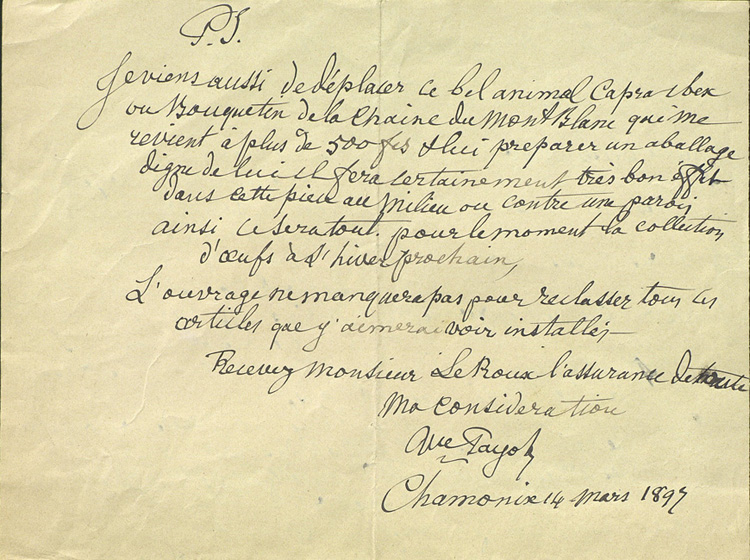 P.S.
Je viens aussi de déplacer ce bel animal Capra ibex
ou Bouquetin de la chaine du Mont Blanc qui me
revient à plus de 500 frs & lui preparer un aballage
digne de lui il fera certainement très bon éffet
dans cette pièce au milieu ou contre une paroi
ainsi ce sera tout pour le moment la collection
d'œufs à l'hiver prochain,
L'ouvrage ne manquera pas pour reclasser tous ces
articles que j'aimerai voir installés
Recevez Monsieur LeRoux l'assurance de toute
Ma consideration
Vve Payot
Chamonix 14 mars 1897